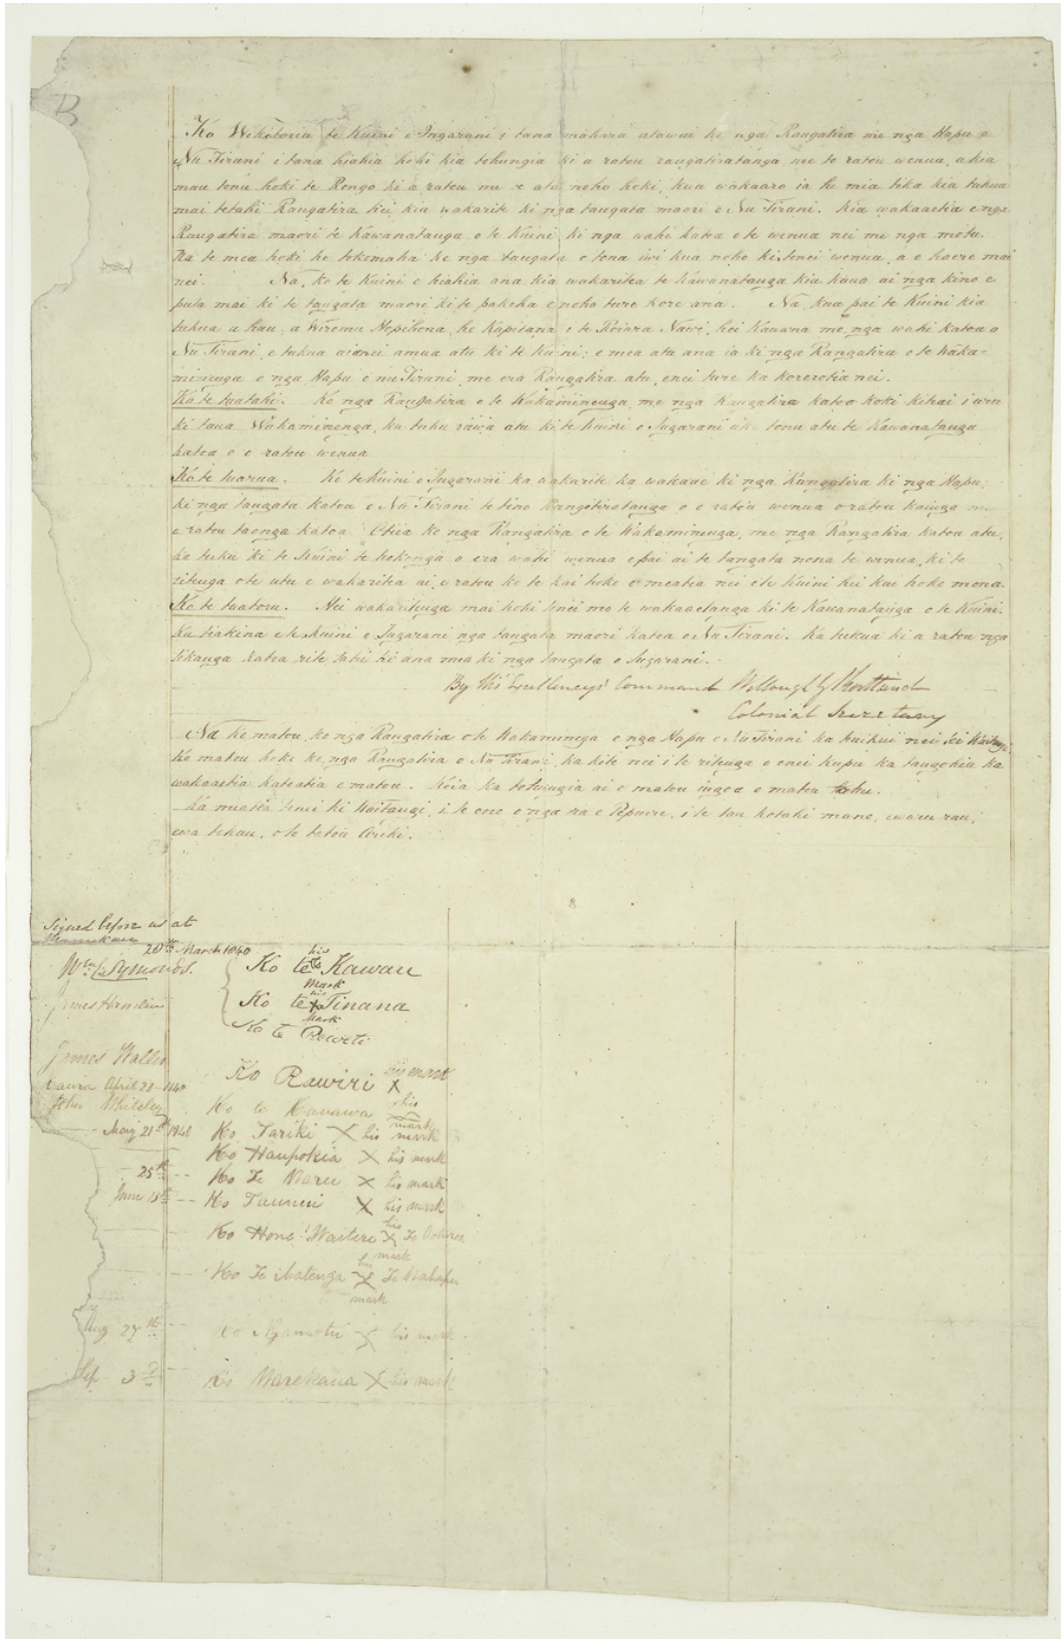 B
Ko Wikitoria te Kuini o Ingarani i tana mahara atawai ki nga Rangatira me nga Hapu o
Nu Tirani i tana hiahia hoki kia tohungia ki a ratou rangatiratanga me te ratou wenua, a kia
mau tonu hoki te Rongo ki a ratou me te ata noho hoki, kua wakaaro ia he mia tika kia tukua
mai tetahi Rangatira hei kia wakarite ki nga tangata maori o Nu Tirani. Kia wakaaetia e nga
Rangatira maori te Kawanatanga o te Kuini, ki nga wahi katoa o te wenua nei me nga motu.
Na te mea hoki he tokomaha ke nga tangata o tona iwi kua noho ki tenei wenua, a e haere mai
nei. Na, ko te Kuini e hiahia ana kia wakaritea te Kawanatanga kia kaua ai nga kino e
puta mai ki te tangata maori ki te pakeha e noho ture kore ana. Na, kua pai te Kuini kia
tukua a hau, a Wiremu Hopihona, he Kapitana i te Roiara Nawi, hei Kawana mo nga wahi katoa o
Nu Tirani, e tukua aianei amua atu ki te Kuini; e mea atu ana ia ki nga Rangatira o te Waka-
minenga o nga Hapu o nu Tirani, me era Rangatira atu, enei ture ka korerotia nei.
Ko te tuatahi. Ko nga Rangatira o te Wakaminenga, me nga Rangatira katoa hoki kihai i uru
ki taua Wakaminenga, ka tuku rawa atu ki te Kuini o Ingarani ake tonu atu te Kawanatanga
katoa o o ratou wenua
Ko te tuarua. Ko te Kuini o Ingarani ka wakarite ka wakaae ki nga Rangatira ki nga Hapu,
ki nga tangata katoa o Nu Tirani te tino Rangatiratanga o o ratou wenua o ratou kainga me
o ratou taonga katoa. Otiia ko nga Rangatira o te Wakaminenga, me nga Rangatira katoa atu,
ka tuku ki te Kuini te hokonga o era wahi wenua e pai ai te tangata nona te wenua, ki te
ritenga o te utu e wakaritea ai e ratou ko te kai hoko e meatia nei e te Kuini hei kai hoko mona.
Ko te tuatoru. Hei wakaritenga mai hoki tenei mo te wakaaetanga ki te Kawanatanga o te Kuini.
Ka tiakina e te Kuini o Ingarani nga tangata maori katoa o Nu Tirani. Ka tukua ki a ratou nga
tikanga katoa rite tahi ki ana mea ki nga tangata o Ingarani.
By His Excellencys' Command Willoughby Shortland
Colonial Secretary
Na Ko matou, ko nga Rangatira o te Wakaminenga o nga Hapu o Nu Tirani ka huihui nei ki Waitangi,
Ko matou hoki ko nga Rangatira o Nu Tirani, ka kite nei i te ritenga o enei kupu ka tangohia ka
wakaaetia katoatia e matou. Koia ka tohungia ai o matou ingoa o matou tohu.
Ka meatia tenei ki Waitangi, i te ono o nga ra o Pepuere, i te tau kotahi mano, ewaru rau,
ewa tekau, o to tatou Ariki.
Signed before us at
20th March 1840
Wm. C. Symonds.
his
Ko te Kawau
mark
James Hamlin
his
Ko te x Tinana
mark
Ko te Reweti
James Wallis
Ko Rawiri his mark
x
April 28 - 1840
John Whiteley
Ko te Kanawa his
mark
May 21st 1840 Ko Tariki X his mark
Ko Haupokia X his mark
25th - - Ko Te Waru X his mark
June 15th - - Ko Taunui X his mark
Ko Hone Waitere his X
mark
Ko Te Matenga his X Te Wahapu
mark
Aug 27th Ko Ngamotu X his mark
Sep 3d Ko Warekaua X his mark